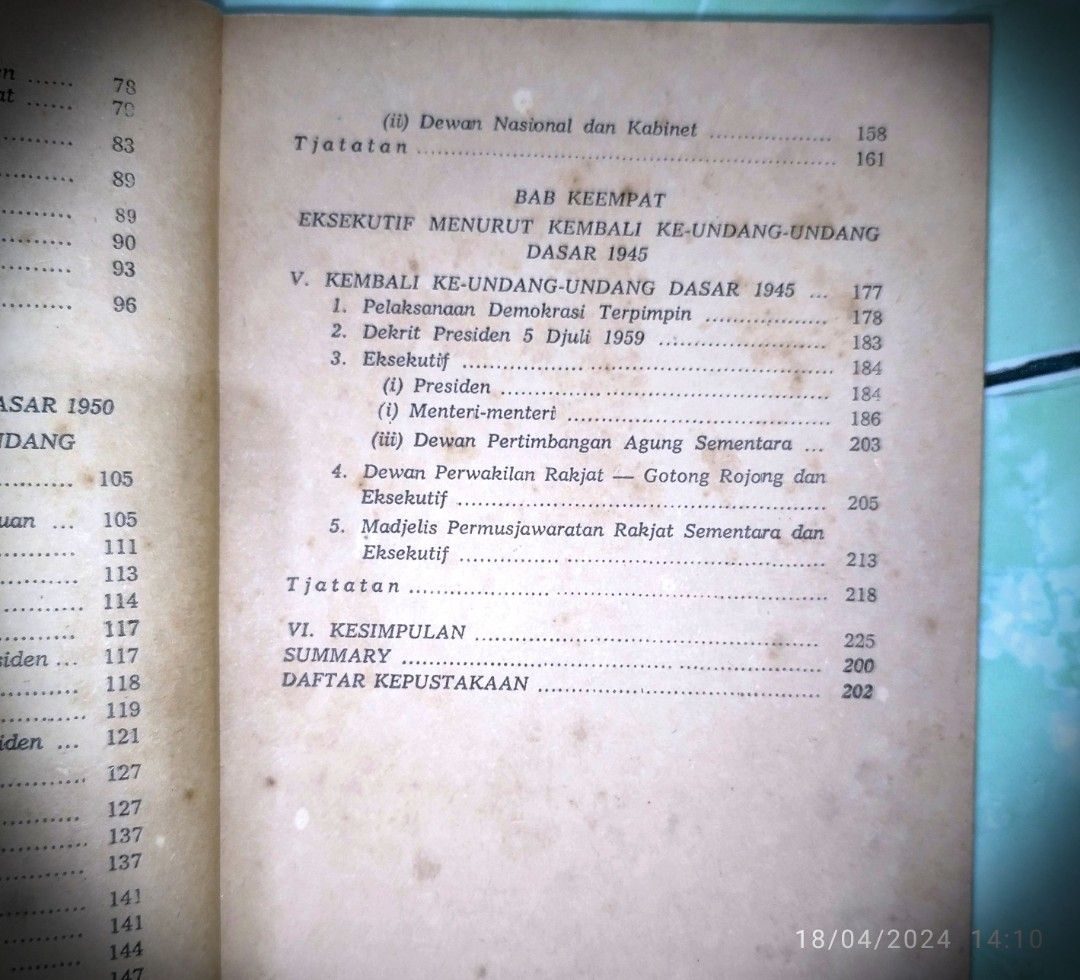 78
79
83
89
89
90
93
96
ASAR 1950
NDANG
105
uan ... 105
111
113
114
117
siden ... 117
118
119
iden ... 121
127
127
137
137
141
141
144
147
(ii) Dewan Nasional dan Kabinet .................. 158
Tjatatan .................................................. 161
BAB KEEMPAT
EKSEKUTIF MENURUT KEMBALI KE-UNDANG-UNDANG
DASAR 1945
V. KEMBALI KE-UNDANG-UNDANG DASAR 1945 ... 177
1. Pelaksanaan Demokrasi Terpimpin .................. 178
2. Dekrit Presiden 5 Djuli 1959 ........................ 183
3. Eksekutif .................................................. 184
(i) Presiden .................................................. 184
(i) Menteri-menteri ....................................... 186
(iii) Dewan Pertimbangan Agung Sementara ... 203
4. Dewan Perwakilan Rakjat — Gotong Rojong dan
Eksekutif .................................................. 205
5. Madjelis Permusjawaratan Rakjat Sementara dan
Eksekutif .................................................. 213
Tjatatan .................................................. 218
VI. KESIMPULAN .................................................. 225
SUMMARY .................................................. 200
DAFTAR KEPUSTAKAAN ....................................... 202
18/04/2024 14:10